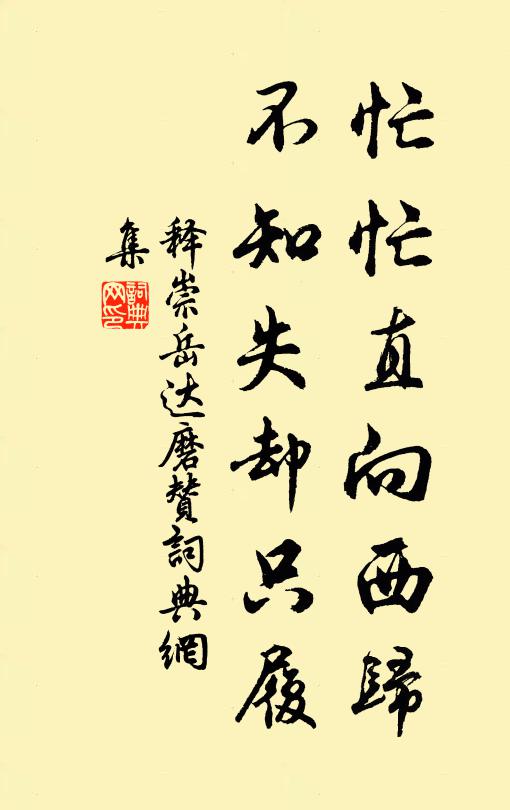 忙忙直向西歸
不知失却只履
释崇岳达磨贊詞典網
集
詞典网印